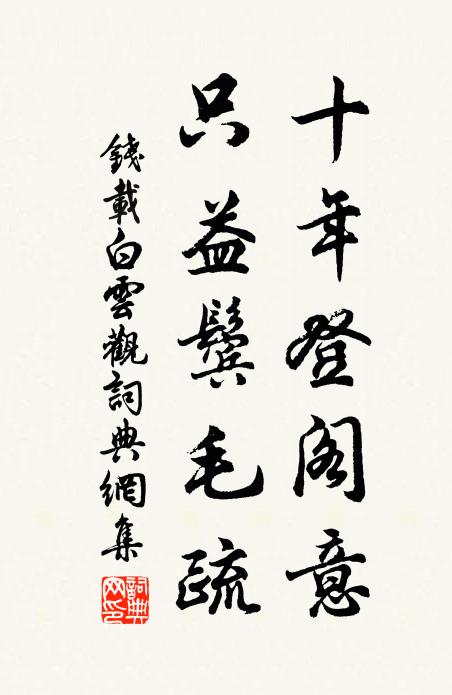 十年登阁意
只益鬓毛疏
錢載白雲觀詞典網集
詞典网印